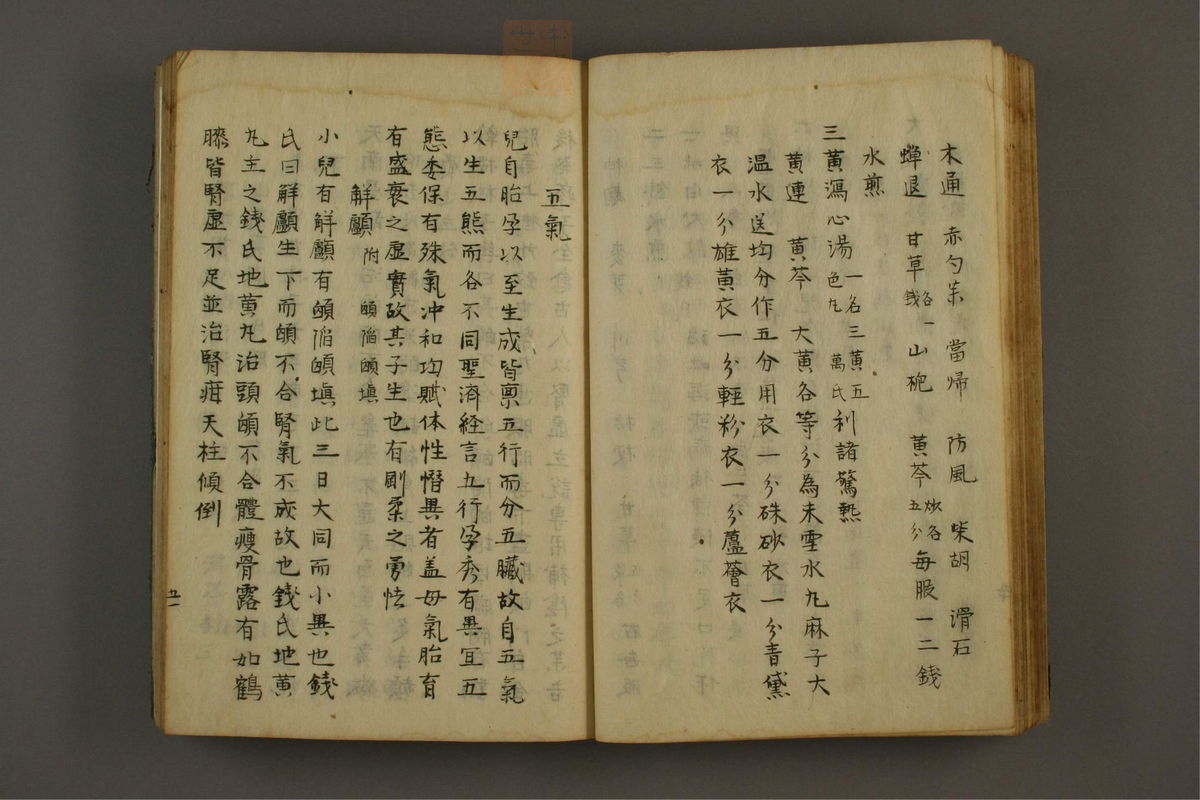 木通 赤勺薬 當帰 防風 柴胡 滑石
蟬退 甘草各一錢 山梔 黄芩炒各五分 每服一二錢
水煎
三黄瀉心湯一名三黄五色丸 萬氏 利諸驚熱
黄連 黄芩 大黄各等分為末雪水丸麻子大
温水送均分作五分用衣一分硃砂衣一分青黛
衣一分雄黄衣一分輕粉衣一分蘆薈衣
五氣
兒自胎孕以至生成皆禀五行而分五臟故自五氣
以生五態而各不同聖済経言五行孕秀有異冝五
態委保有殊氣冲和均賦体性憯異者盖母氣胎育
有盛衰之虚實故其子生也有剛柔之勇怯
解顱附 䪿陷䪿塡
小兒有解顱有䪿陷䪿塡此三日大同而小異也錢
氏曰解顱生下而䪿不合腎氣不成故也錢氏地黄
丸主之錢氏地黄丸治頭䪿不合體瘦骨露有如鶴
膝皆腎虚不足並治腎疳天柱傾倒
五一